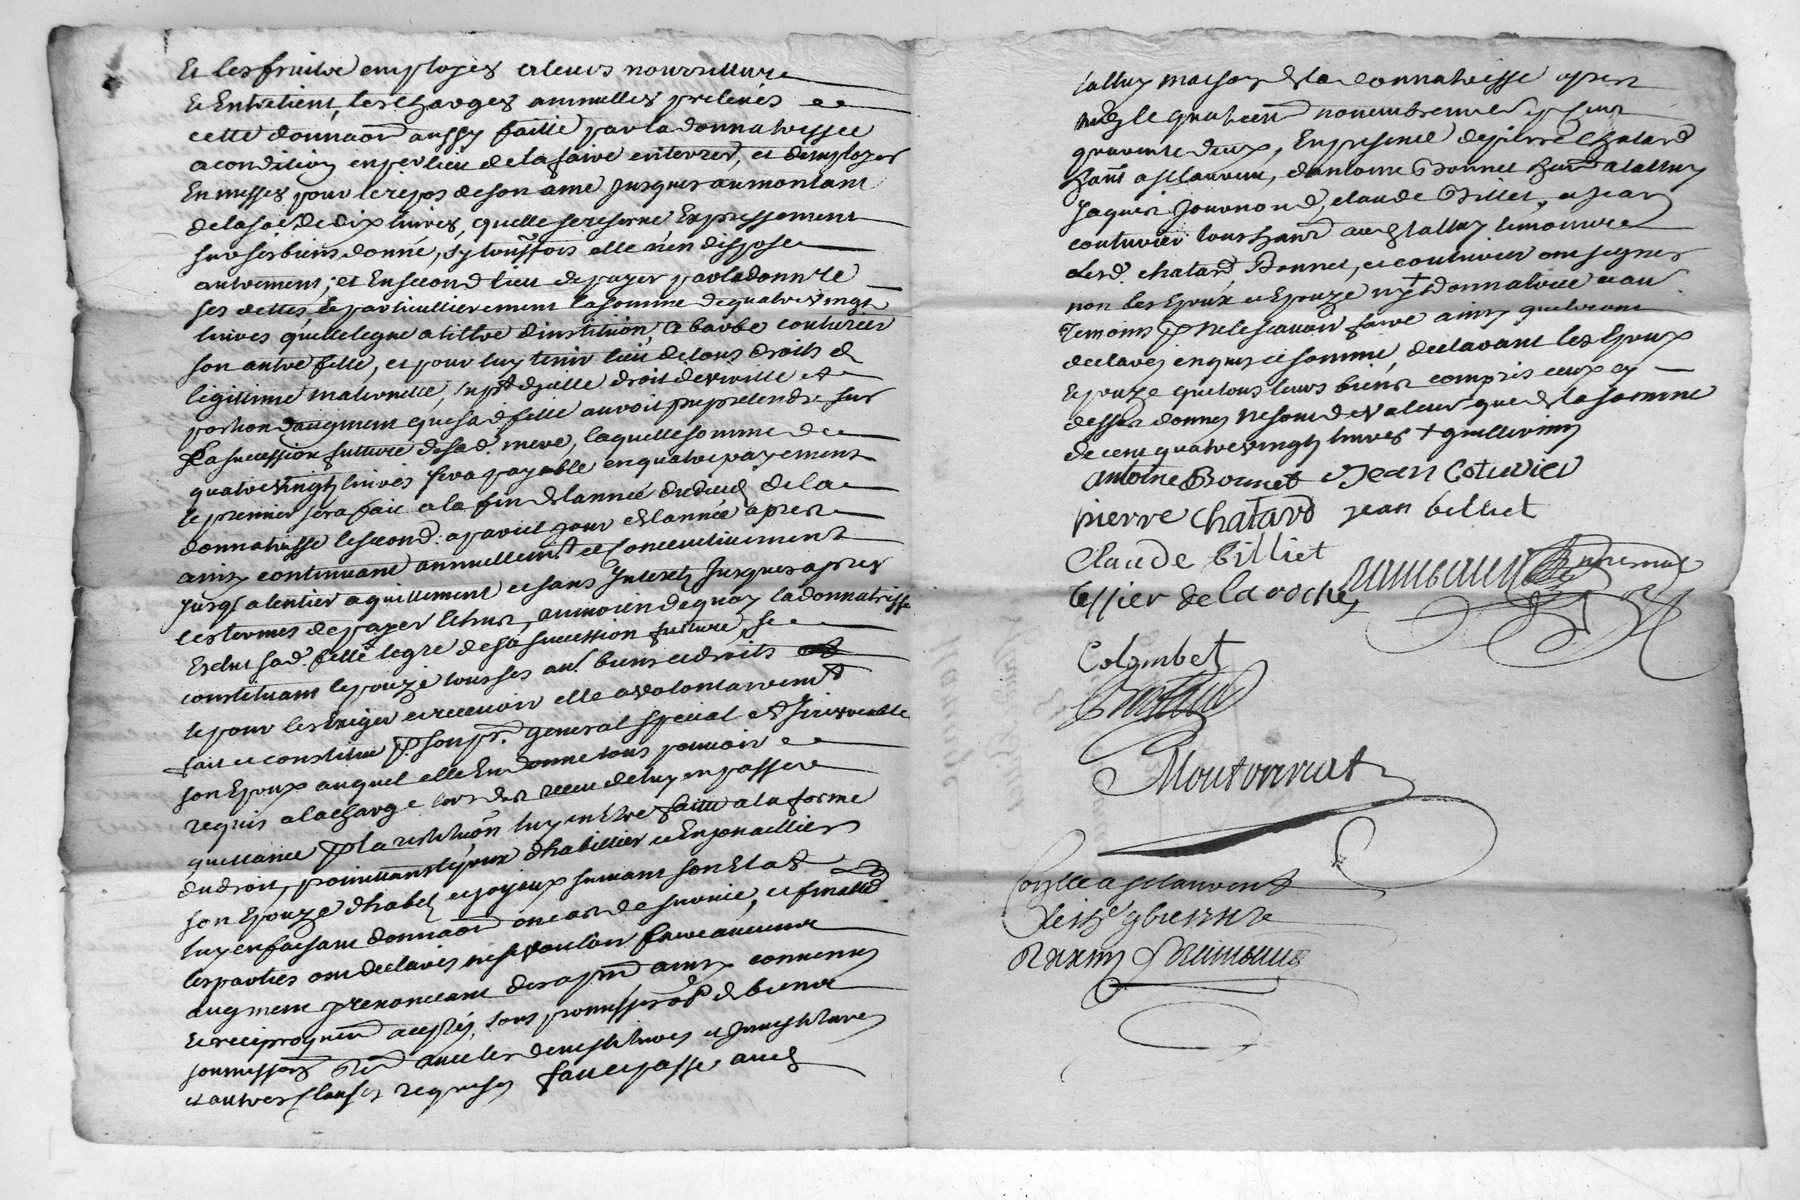 Et les fruits employés a leurs nourriture
et Entretient, les charges annuelles prelevés
cette donnaon aussy faitte par la donnatrisse
a condition en per lieu de la faire enterrer, et demployer
En messes pour le repos de son ame Jusques au montant
de la soe de dix livres, quelle se reserve Expressement
sur ses biens donné, sy touttfois elle n'en dispose
autrement; et En second lieu de payer par le donn re
ses dettes et particullierement la somme de quatre vingt
livres quelle legue a tiltre d'instituion, a barbe couturier
son autre fille, et pour luy tenir lieu de tous droits de
legitime maternelle, suplt d'jcelle droit de virille et
portion d'augment que sad fille auroit pu pretendre sur
La sucession future de sad. mere, laquelle somme de
quatre vingts livres sera payable en quatre payement
le premier sera fait a la fin de lannée du deced de la
donnatrisse le second a pareil jour de lannée apres
ainsy continuant annuellemt et consecutivement
jusqs a lentier aquittement et sans Interets Jusques apres
les termes de payer echus, au moien de quoy la donnatrisse
Exclut sad. fille legre de sa sucession future, se
constituant lepouze tous ses aut. biens et droits
et pour les Exiger et recevoir elle a volontairemt
fait et constitue p son pr. general special et Irrevocable
son Epoux auquel elle En donne tous pouvoir
requis a la charge lors des receu de luy en passer
quittance p la restituon luy en Etre faitte a la forme
du droit, promettant lepoux d'habillier et Enjouaillier
son Epouze d'habts et joyaux suivant son Etat
luy en faisant donnaon en cas de survie, et finallt
les parties ont declarés ne vouloir faire aucun
augment y renonceant des a pnt ainsy convenus
et reciproquemt acceptés, sous promisses obt de biens
soumissions Rtn avec les devestitures et Investitures
et autres Clauses requises fait et passé aud
talluy maison de la donnatrisse apres
midy le quatriem novembre mil sept cent
quarente deux, En presence de pierre Chatard
habt a st laurent, d'antoine Bonnet habt a talluy
Jaques Journoud, claude Billet, et Jean
couturier tous habt aud talluy temoins
Lesd. chatard, Bonnet, et couturier ont signes
non les Epoux et Epouze ny donnatrice et aut.
Temoins p ne le scavoir faire ainsy quils ont
declarés enquis et sommé, declarant les Epoux
Epouze que tous leurs biens compris ceux cy
dessus donnés ne sont de valeur que de la somme
de cent quatre vingts livres +
antoine Bonnet Jean Coturier
pierre chatard jean billiet
Claude billiet
tessier de la roche Raimbaud
Colombet
Moutonnat